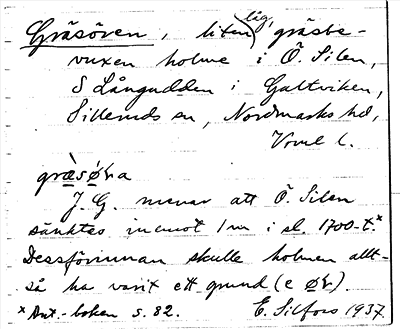 Gräsören, liten låg, gräsbe-
vuxen holme i Ö. Silen,
S Långudden i Galtviken,
Silleruds sn, Nordmarks hd,
Vrml l.
græ̀søra
J. G. menar att Ö. Silen
sänktes inemot 1 m i sl. 1700-t.x
Dessförinnan skulle holmen allt-
så ha varit ett grund (e ør).
x Ant.-boken s. 82. E. Silfors 1937.